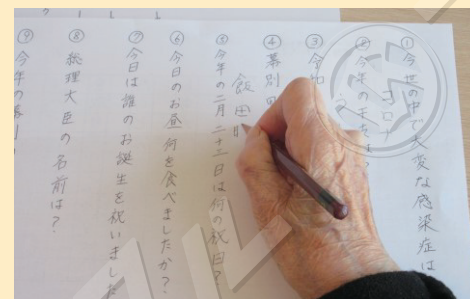 ①今世の中で大変な感染症は
コロナ
②今年の干支は
③令和
④幕別町
飯田
⑤今年の二月二十三日は何の祝日?
⑥今日のお昼何を食べましたか?
⑦今日は誰のお誕生を祝いました
⑧総理大臣の名前は?
⑨今年の幕別